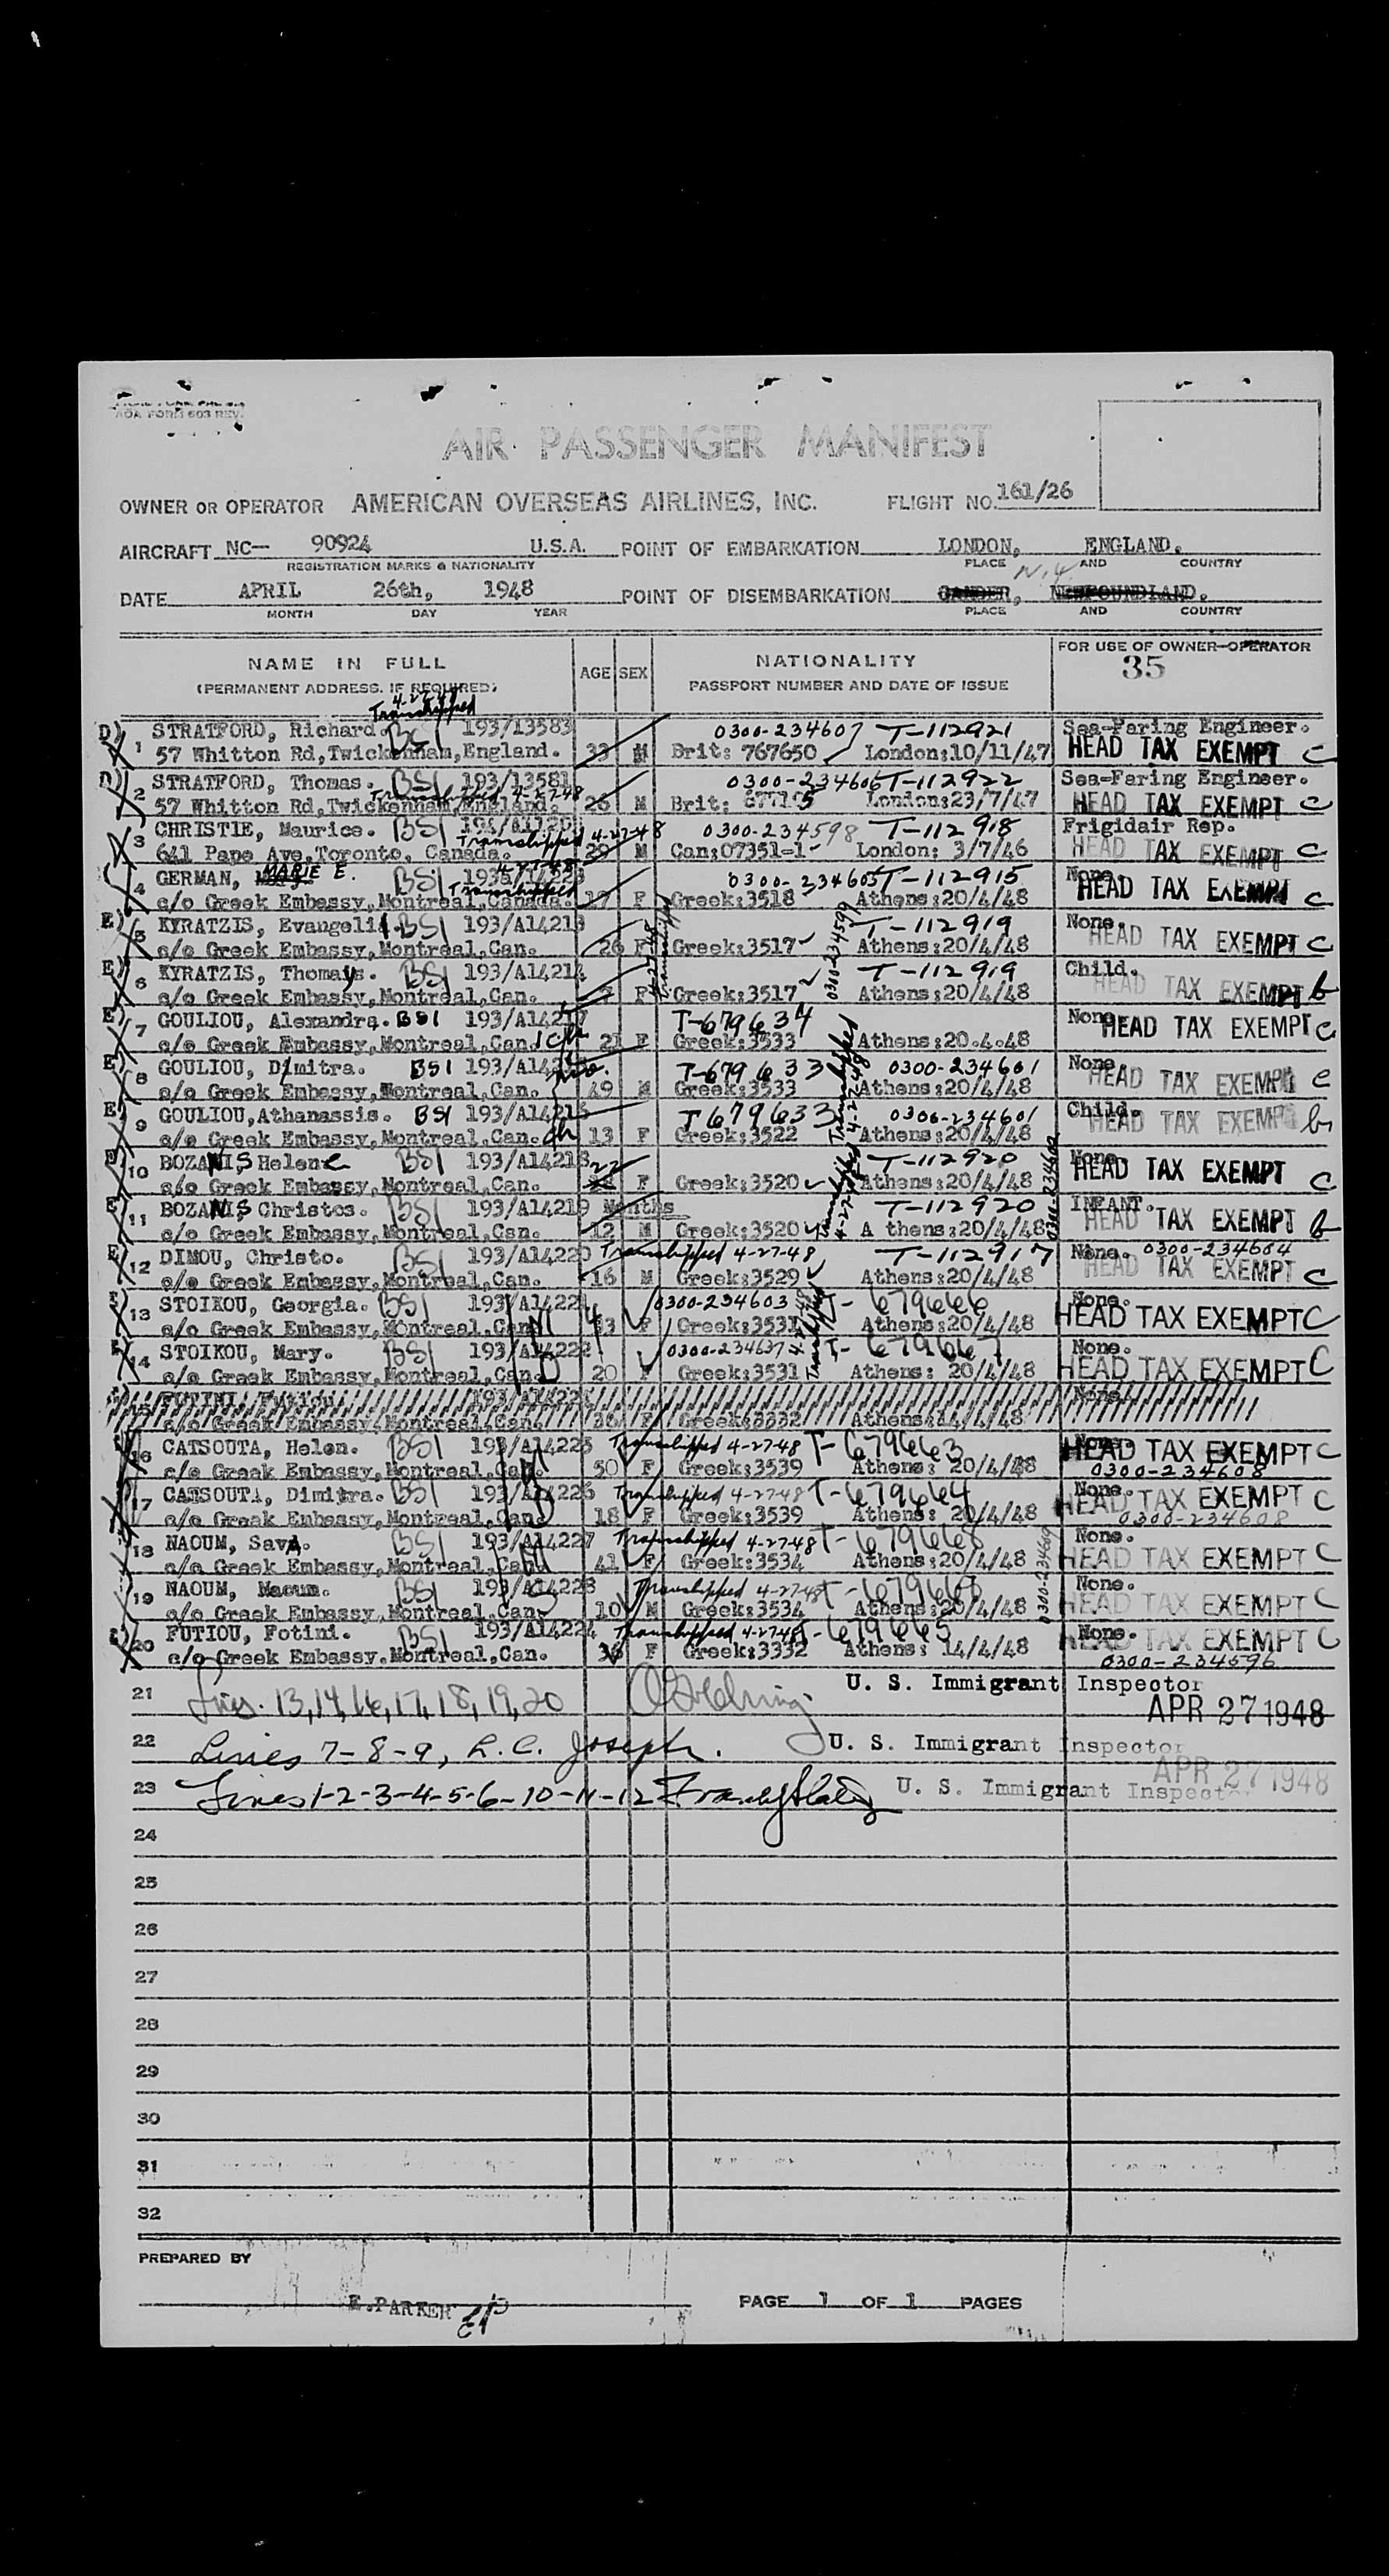 AOA FORM 603 REV.
AIR PASSENGER MANIFEST
OWNER OR OPERATOR AMERICAN OVERSEAS AIRLINES, INC. FLIGHT NO. 161/26
AIRCRAFT NC— 90924 U.S.A. POINT OF EMBARKATION LONDON, ENGLAND.
REGISTRATION MARKS & NATIONALITY PLACE AND COUNTRY
N.Y.
DATE APRIL 26th, 1948 POINT OF DISEMBARKATION GANDER, NEWFOUNDLAND.
MONTH DAY YEAR PLACE AND COUNTRY
NAME IN FULL AGE SEX NATIONALITY FOR USE OF OWNER-OPERATOR
(PERMANENT ADDRESS, IF REQUIRED) PASSPORT NUMBER AND DATE OF ISSUE 35
4-27-48
Transhipped
D) STRATFORD, Richard. BSI 193/13583 0300-234607 T-112921 Sea-Faring Engineer.
1 57 Whitton Rd,Twickenham,England. 33 M Brit: 767650 London:10/11/47 HEAD TAX EXEMPT C
D) STRATFORD, Thomas. BSI 193/13581 0300-234606 T-112922 Sea-Faring Engineer.
Transhipped 4-27-48
2 57 Whitton Rd,Twickenham,England. 26 M Brit: London:23/7/47 HEAD TAX EXEMPT C
CHRISTIE, Maurice. BSI 0300-234598 T-112918 Frigidair Rep.
Transhipped 4-27-48
3 641 Pape Ave,Toronto, Canada. 29 M Can:07351-1 London: 3/7/46 HEAD TAX EXEMPT C
GERMAN, MARIE E. BSI 0300-234605 T-112915 None.
Transhipped
4 c/o Greek Embassy,Montreal,Canada. 17 F Greek:3518 Athens:20/4/48 HEAD TAX EXEMPT C
E) KYRATZIS, Evangelia. BSI 193/A14213 T-112919 None.
5 c/o Greek Embassy,Montreal,Can. 26 F Greek:3517 Athens:20/4/48 HEAD TAX EXEMPT C
Transhipped 4-27-48
0300-234599
E) KYRATZIS, Thomays. BSI 193/A14214 T-112919 Child.
6 c/o Greek Embassy,Montreal,Can. F Greek:3517 Athens:20/4/48 HEAD TAX EXEMPT b
E) GOULIOU, Alexandra. BSI 193/A14217 T-679634 None.
7 c/o Greek Embassy,Montreal,Can. 21 F Greek:3533 Athens:20.4.48 HEAD TAX EXEMPT C
E) GOULIOU, Dimitra. BSI T-679633 0300-234601 None.
8 c/o Greek Embassy,Montreal,Can. 49 M Greek:3533 Athens:20/4/48 HEAD TAX EXEMPT C
Transhipped 4-27-48
E) GOULIOU,Athanassis. BSI 193/A14216 T679633 0300-234601 Child.
9 c/o Greek Embassy,Montreal,Can. ch 13 F Greek:3522 Athens:20/4/48 HEAD TAX EXEMPT b
E) BOZANIS, Helene BSI 193/A14218 22 T-112920 None.
10 c/o Greek Embassy,Montreal,Can. F Greek:3520 Athens:20/4/48 HEAD TAX EXEMPT C
Transhipped 4-27-48
E) BOZANIS, Christos. BSI 193/A14219 Months T-112920 INFANT.
11 c/o Greek Embassy,Montreal,Can. 12 M Greek:3520 A thens:20/4/48 HEAD TAX EXEMPT b
E) DIMOU, Christo. BSI 193/A14220 Transhipped 4-27-48 T-112917 None. 0300-234604
12 c/o Greek Embassy,Montreal,Can. 16 M Greek:3529 Athens:20/4/48 HEAD TAX EXEMPT C
E) STOIKOU, Georgia. BSI 193/A14221 0300-234603 T-679666 None.
13 c/o Greek Embassy,Montreal,Can. F Greek:3531 Athens:20/4/48 HEAD TAX EXEMPT C
Transhipped
STOIKOU, Mary. BSI 193/A14222 0300-234637 T-679667 None.
14 c/o Greek Embassy,Montreal,Can. 20 F Greek:3531 Athens: 20/4/48 HEAD TAX EXEMPT C
FUTINI, Futiou 193/A14224 None.
15 c/o Greek Embassy,Montreal,Can. F Greek:3332 Athens:14/4/48
CATSOUTA, Helen. BSI 193/A14225 Transhipped 4-27-48 T-679663 None.
16 c/o Greek Embassy,Montreal,Can. 50 F Greek:3539 Athens: 20/4/48 HEAD TAX EXEMPT C
0300-234608
CATSOUTA, Dimitra. BSI 193/A14226 Transhipped 4-27-48 T-679664 None.
17 c/o Greek Embassy,Montreal,Can. 18 F Greek:3539 Athens: 20/4/48 HEAD TAX EXEMPT C
0300-234608
NAOUM, Sava. BSI 193/A14227 Transhipped 4-27-48 T-679668 None.
18 c/o Greek Embassy,Montreal,Can. 41 F Greek:3534 Athens:20/4/48 HEAD TAX EXEMPT C
NAOUM, Naoum. BSI 193/A14228 Transhipped 4-27-48 T-679668 None.
19 c/o Greek Embassy,Montreal,Can. 10 M Greek:3534 Athens:20/4/48 HEAD TAX EXEMPT C
FUTIOU, Fotini. BSI 193/A14224 Transhipped 4-27-48 T-679665 None.
20 c/o Greek Embassy,Montreal,Can. 36 F Greek:3332 Athens: 14/4/48 HEAD TAX EXEMPT C
0300-234596
21 Lines. 13,14,16,17,18,19,20 U. S. Immigrant Inspector
APR 27 1948
22 Lines 7-8-9, L.C. Joseph. U. S. Immigrant Inspector
APR 27 1948
23 Lines 1-2-3-4-5-6-10-11-12 U. S. Immigrant Inspector
24
25
26
27
28
29
30
31
32
PREPARED BY
E.PARKER EP PAGE 1 OF 1 PAGES